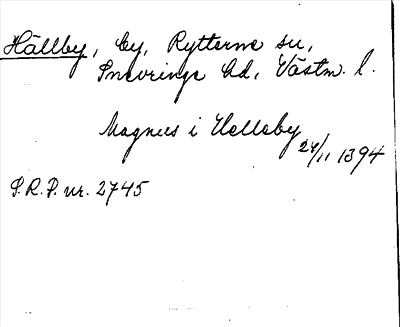 Hällby, by, Rytterne sn,
Snevringe hd, Västm. l.
Magnus i Helleby
24/11 1394
S.R.P. nr. 2745